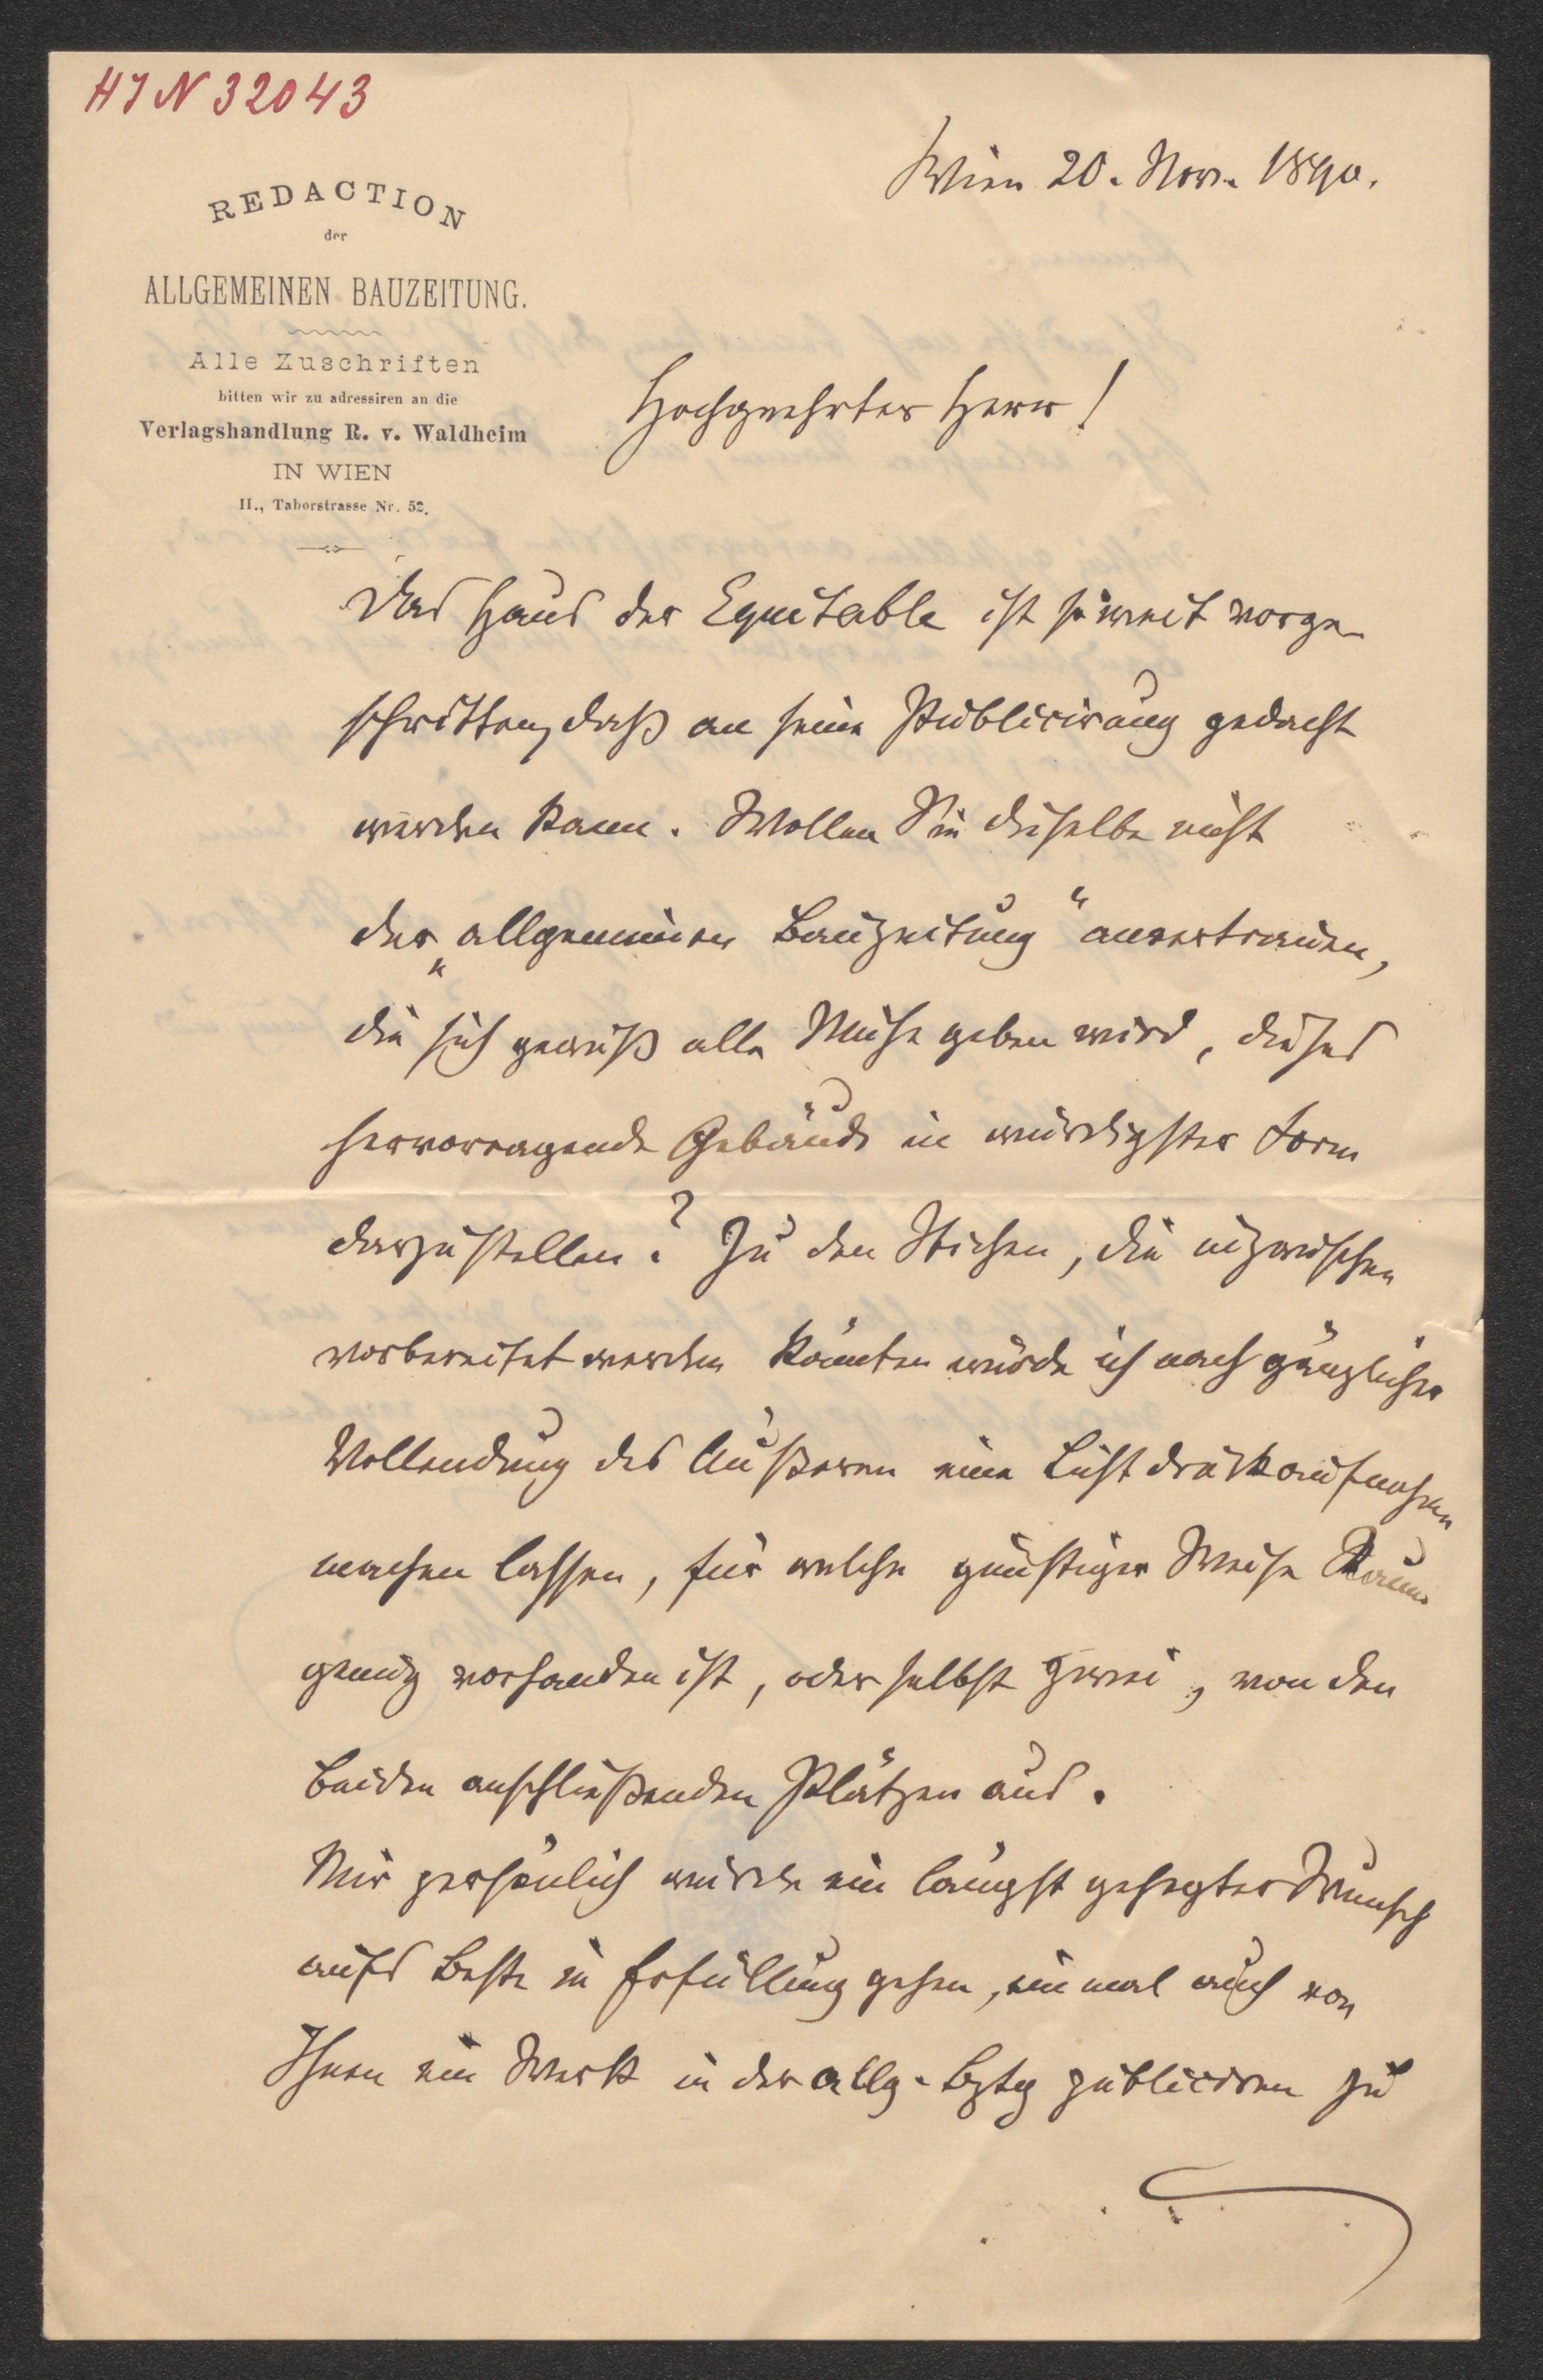 HIN 32043
REDACTION
der
ALLGEMEINEN BAUZEITUNG.
Alle Zuschriften
bitten wir zu adressiren an die
Verlagshandlung R. v. Waldheim
IN WIEN
II., Taborstrasse Nr. 52.
Wien 20. Nov. 1890.
Hochgeehrter Herr!
Das Haus der Equitable ist so weit vorge-
schritten, daß an seine Publicirung gedacht
werden kann. Wollen Sie dieselbe nicht
der „allgemeinen Bauzeitung“ anvertrauen,
die sich gewiß alle Mühe geben wird, dieses
hervorragende Gebäude in würdigster Form
darzustellen? Zu den Stichen, die inzwischen
vorbereitet werden könnten würde ich nach gänzlicher
Vollendung des Äußeren eine Lichtdruckaufnahme
machen lassen, für welche günstiger Weise Raum
genug vorhanden ist, oder selbst zwei, von den
beiden anschließenden Plätzen aus.
Mir persönlich würde ein längst gehegter Wunsch
aufs Beste in Erfüllung gehen, einmal auch von
Ihnen ein Werk in der allg. Bztg publiciren zu